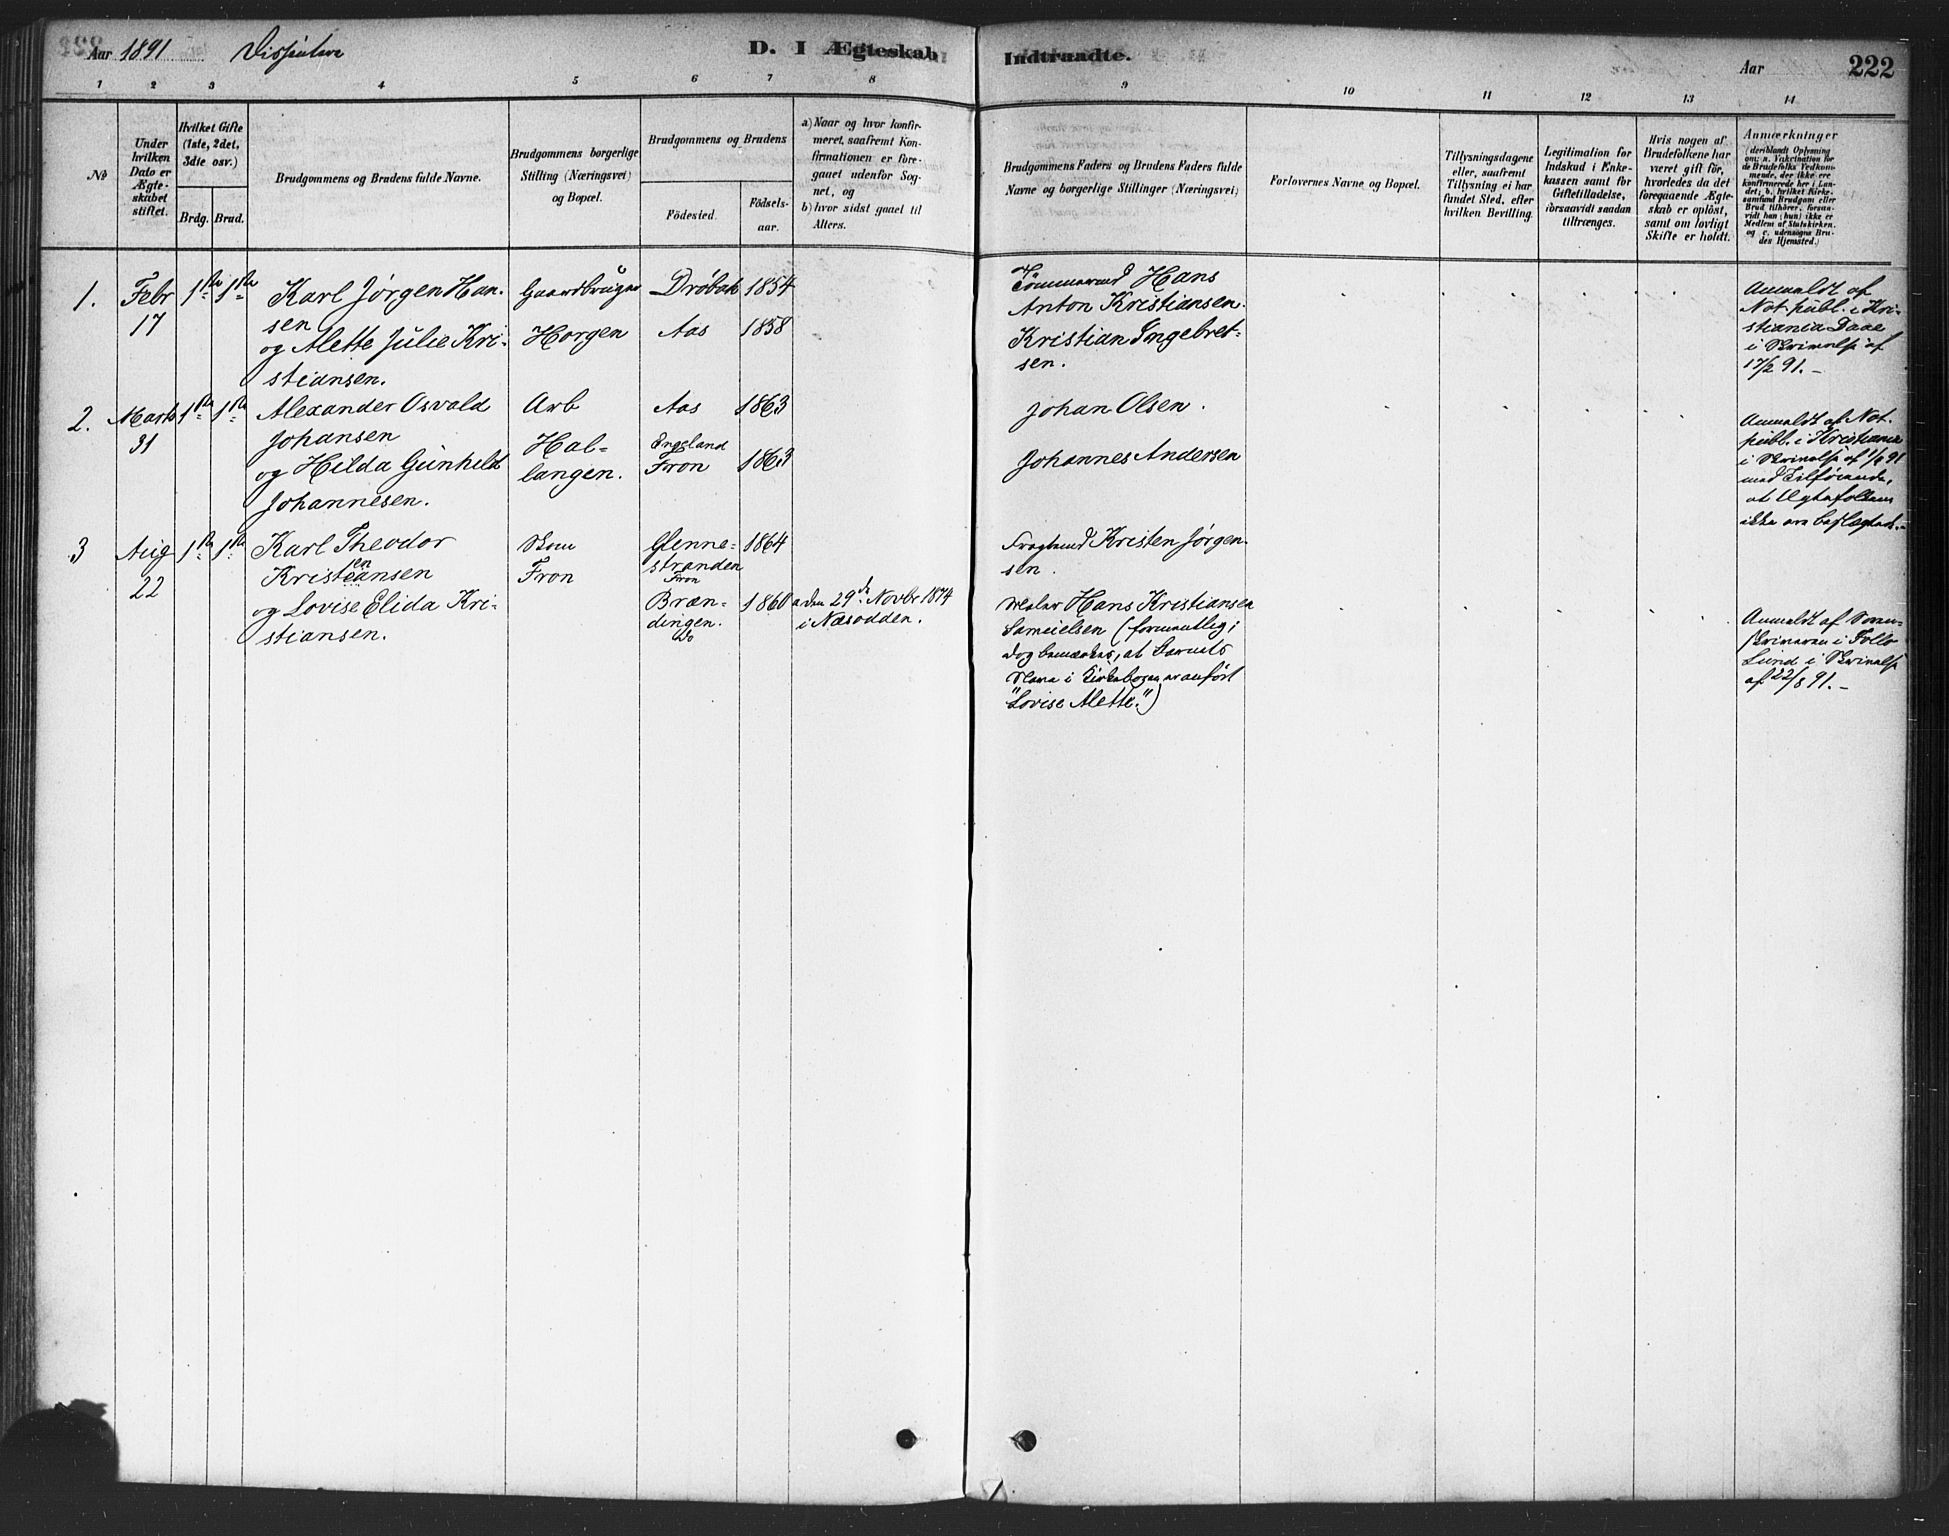 Aar 1891 Dissentere
D. I Ægteskab Indtraadte.
Aar
222
1 2 3 4 5 6 7 8 9 10 11 12 13 14
No
Under
hvilken
Dato er
Ægte-
skabet
stiftet.
Hvilket Gifte
(1ste, 2det,
3dte osv.)
Brdg. Brud.
Brudgommens og Brudens fulde Navne.
Brudgommens borgerlige
Stilling (Næringsvei)
og Bopæl.
Brudgommens og Brudens
Födested.
Födsels-
aar.
a) Naar og hvor konfir-
meret, saafremt Kon-
firmationen er fore-
gaaet udenfor Sog-
net, og
b) hvor sidst gaaet til
Alters.
Brudgommens Faders og Brudens Faders fulde
Navne og borgerlige Stillinger (Næringsvei)
Forlovernes Navne og Bopæl.
Tillysningsdagene
eller, saafremt
Tillysning ei har
fundet Sted, efter
hvilken Bevilling.
Legitimation for
Indskud i Enke-
kassen samt for
Giftetilladelse,
forsaavidt saadan
tiltrænges.
Hvis nogen af
Brudefolkene har
været gift för,
hvorledes da det
foregaaende Ægte-
skab er oplöst,
samt om lovligt
Skifte er holdt.
Anmærkninger
(deriblandt Oplysning
om: a. Vakcination for
de Brudefolks Vedkom-
mende, der ikke ere
konfirmerede her i Lan-
det; b. hvilket Kirke-
samfund Brudgom eller
Brud tilhörer, forsaa-
vidt han (hun) ikke er
Medlem af Statskirken.
og c. udensogns Bru-
des Hjemsted.)
1. Febr 1ste 1ste Karl Jørgen Han- Gaardbruger Drøbak 1854
17 sen
og Alette Julie Kri- Horgen Aas 1858
stiansen.
Tømmermd Hans
Anton Kristiansen.
Kristian Engebret-
sen.
Anmeldt af
Not. publ. i Kri-
stiania Daae
i Skrivelse af
17/2 91.-
2. Marts 1ste 1ste Alexander Osvald Arb Aas 1863
31 Johansen
og Hilda Gunhild Hal- Engeland
Johannesen. langen. Fron 1863
Johan Olsen.
Johannes Andersen
Anmeldt af Not.
publ. i Kristiania
i Skrivelse af 1/4 91
med Tilføiende,
at Egtefolkene
ikke ere beslægtede.-
3 Aug 1ste 1ste Karl Theodor Skom Glenne- 1864
22 Kristiansen en Fron stranden
Fron
og Lovise Elida Kri- Bræn- 1860 a. den 29de Novbr 1874
stiansen. dingen. i Næsodden.
do
Fragtmd Kristen Jørgen-
sen.
Hans Kristiansen
Samuelsen (formentlig;
dog bemærkes, at Barnets
Navn i Kirkebogen er anført
"Lovise Alette.")
Anmeldt af Soren-
skriveren i Follo
Lund i Skrivelse
af 22/8 91.-